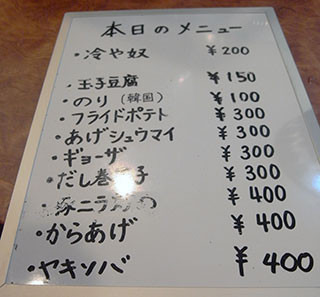 本日のメニュー
・冷や奴 ¥200
・玉子豆腐 ¥150
・のり(韓国) ¥100
・フライドポテト ¥300
・あげシュウマイ ¥300
・ギョーザ ¥300
・だし巻 子 ¥300
・豚ニラ の ¥400
・からあげ ¥400
・ヤキソバ ¥400